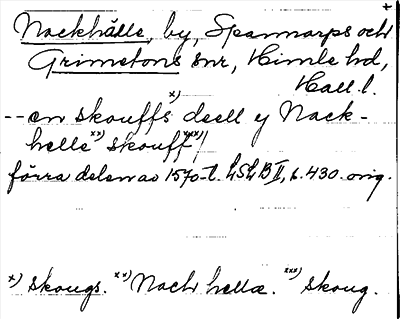 +
Nackhälle, by, Spannarps och
Grimetons snr, Himle hd,
Hall. l.
-- en skouffs x) deell y Nack-
helle xx) skouff xxx)/
förra delen av 1570-t. HSH B II, s. 430. orig.
x) skougs. xx) Nach hellæ. xxx) skoug.